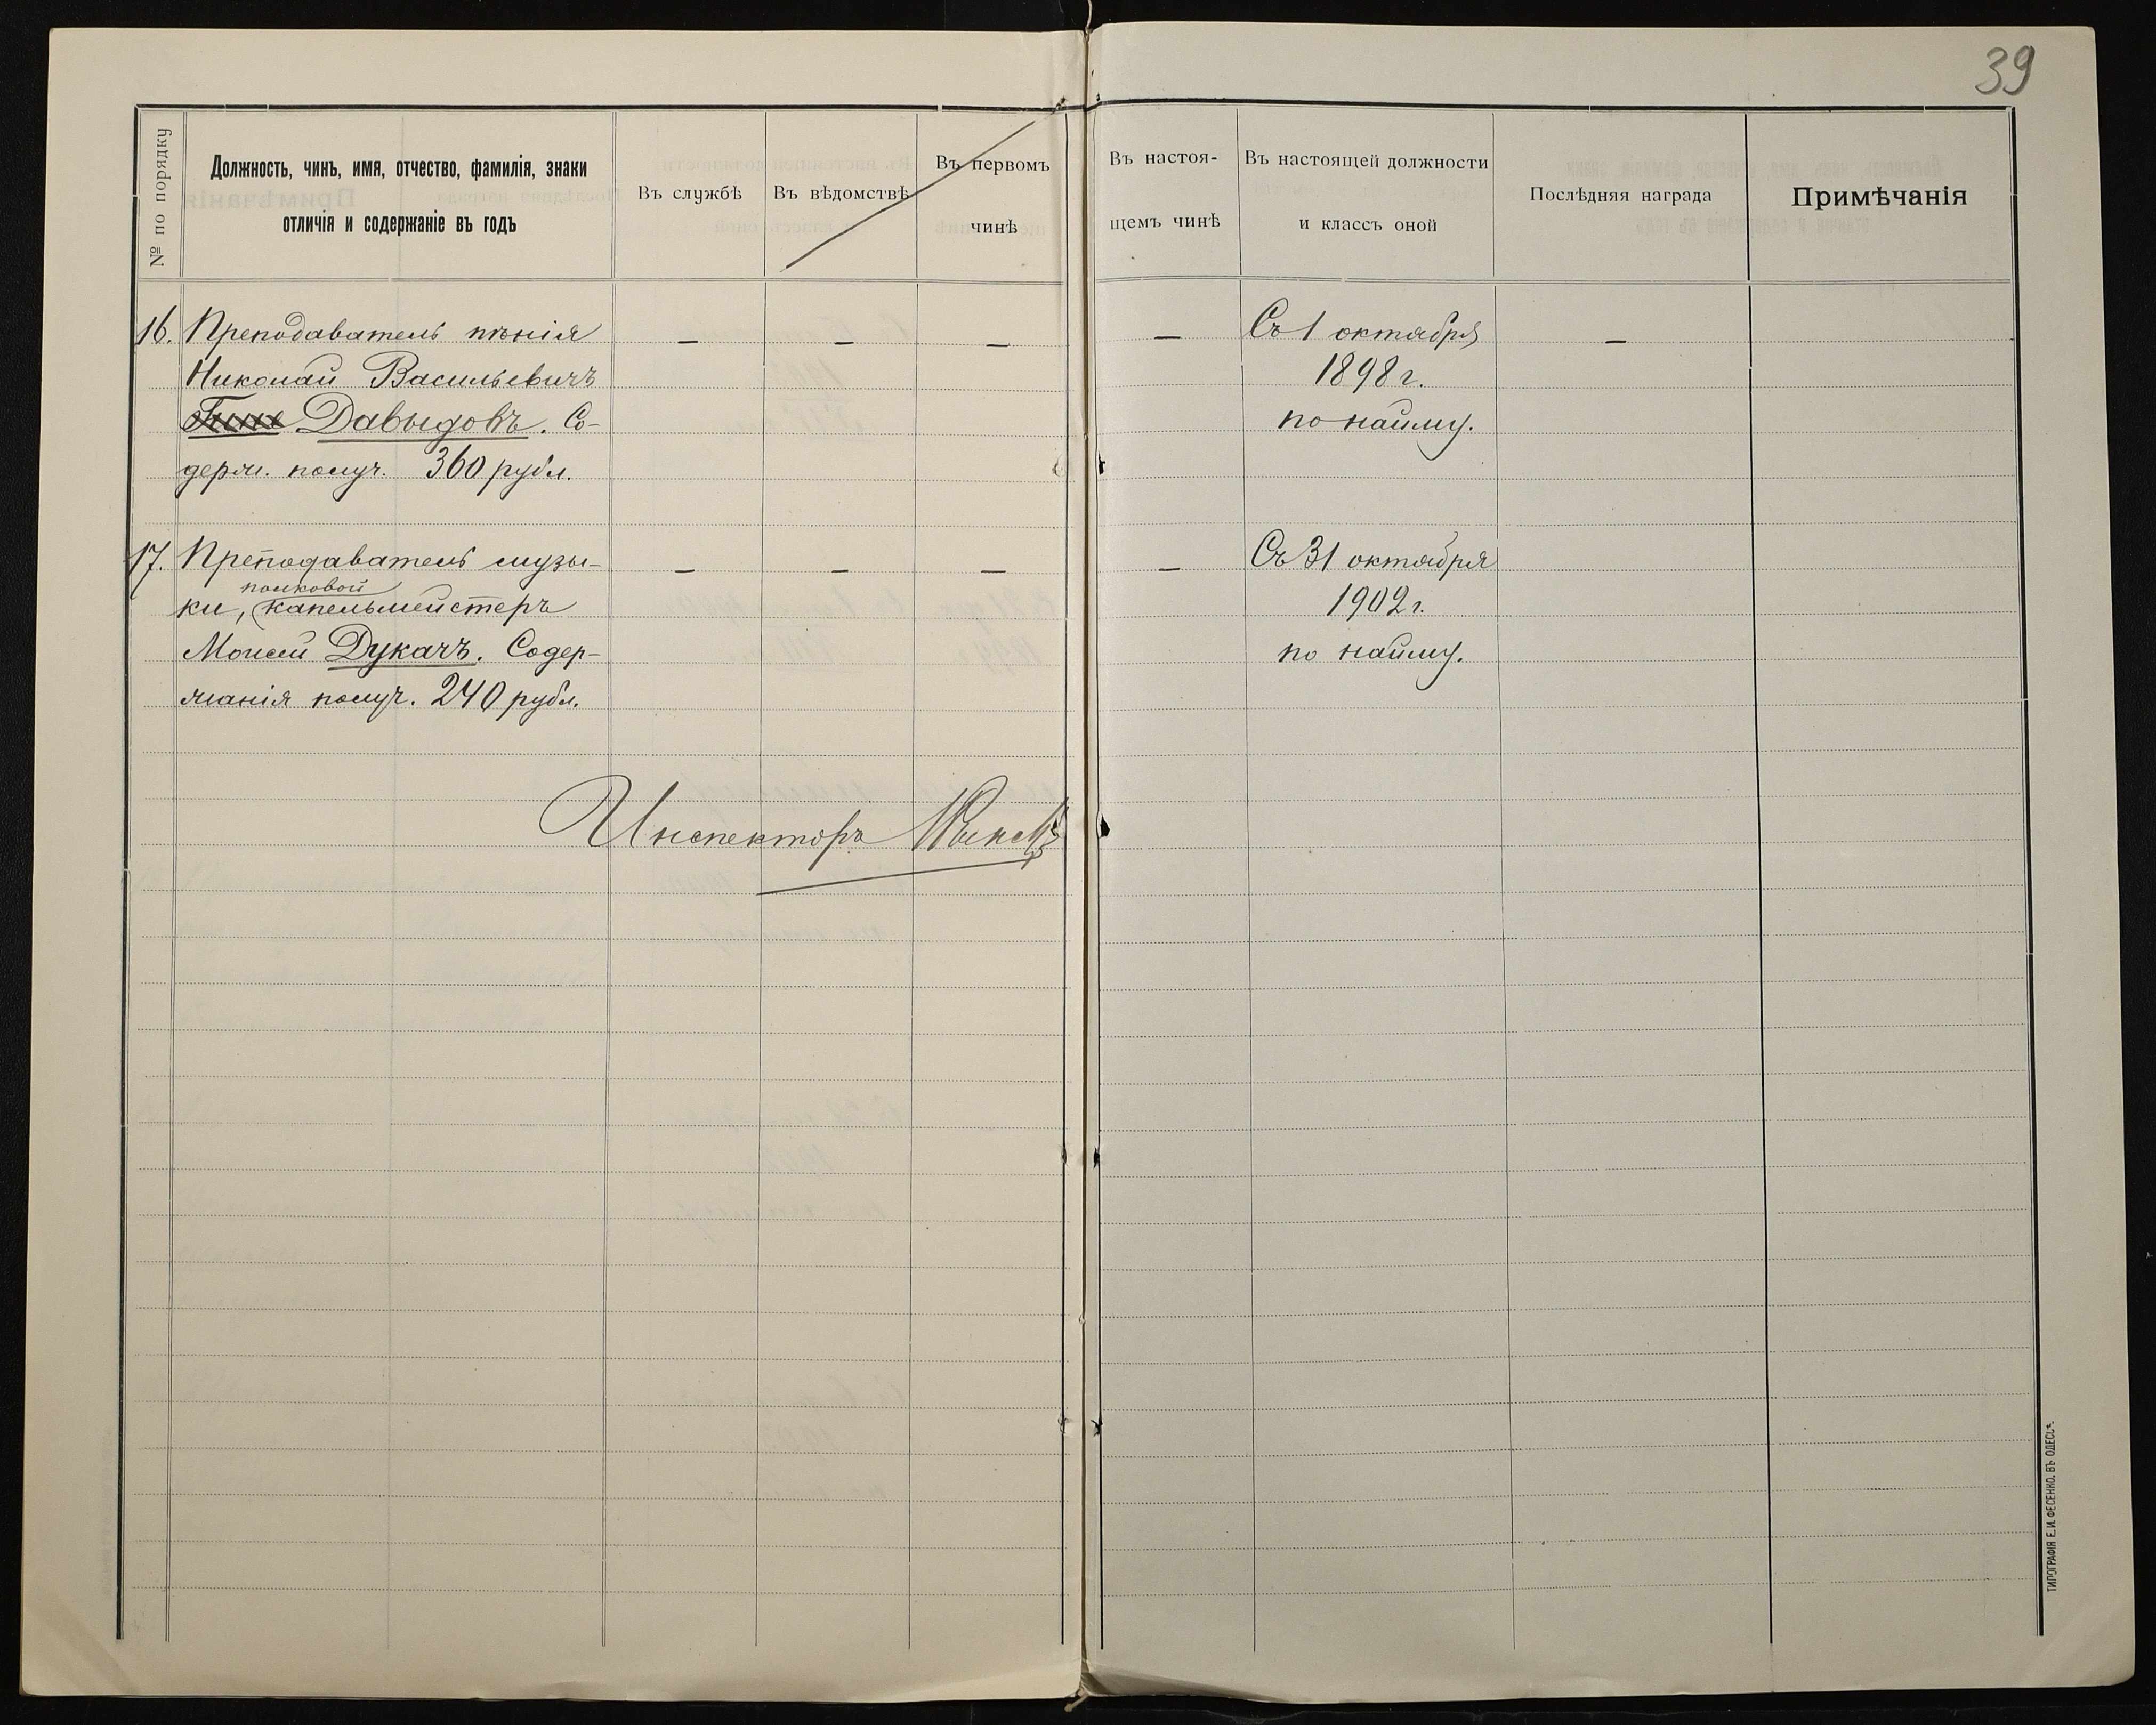 39
№ по порядку
Должность, чинъ, имя, отчество, фамилія, знаки
отличія и содержаніе въ годъ
Въ службѣ
Въ вѣдомствѣ
Въ первомъ
чинѣ
Въ настоя-
щемъ чинѣ
Въ настоящей должности
и классъ оной
Послѣдняя награда
Примѣчанія
16. Преподаватель пѣнія — — — — Съ 1 октября —
Николай Васильевичъ 1898 г.
Давыдовъ. Со- по найму.
держ. получ. 360 рубл.
17. Преподаватель музы- — — — — Съ 31 октября
полковой
ки, капельмейстеръ 1902 г.
Моисей Дукачъ. Содер- по найму.
жанія получ. 240 рубл.
Инспекторъ
ТИПОГРАФІЯ Е. И. ФЕСЕНКО, ВЪ ОДЕССѢ.